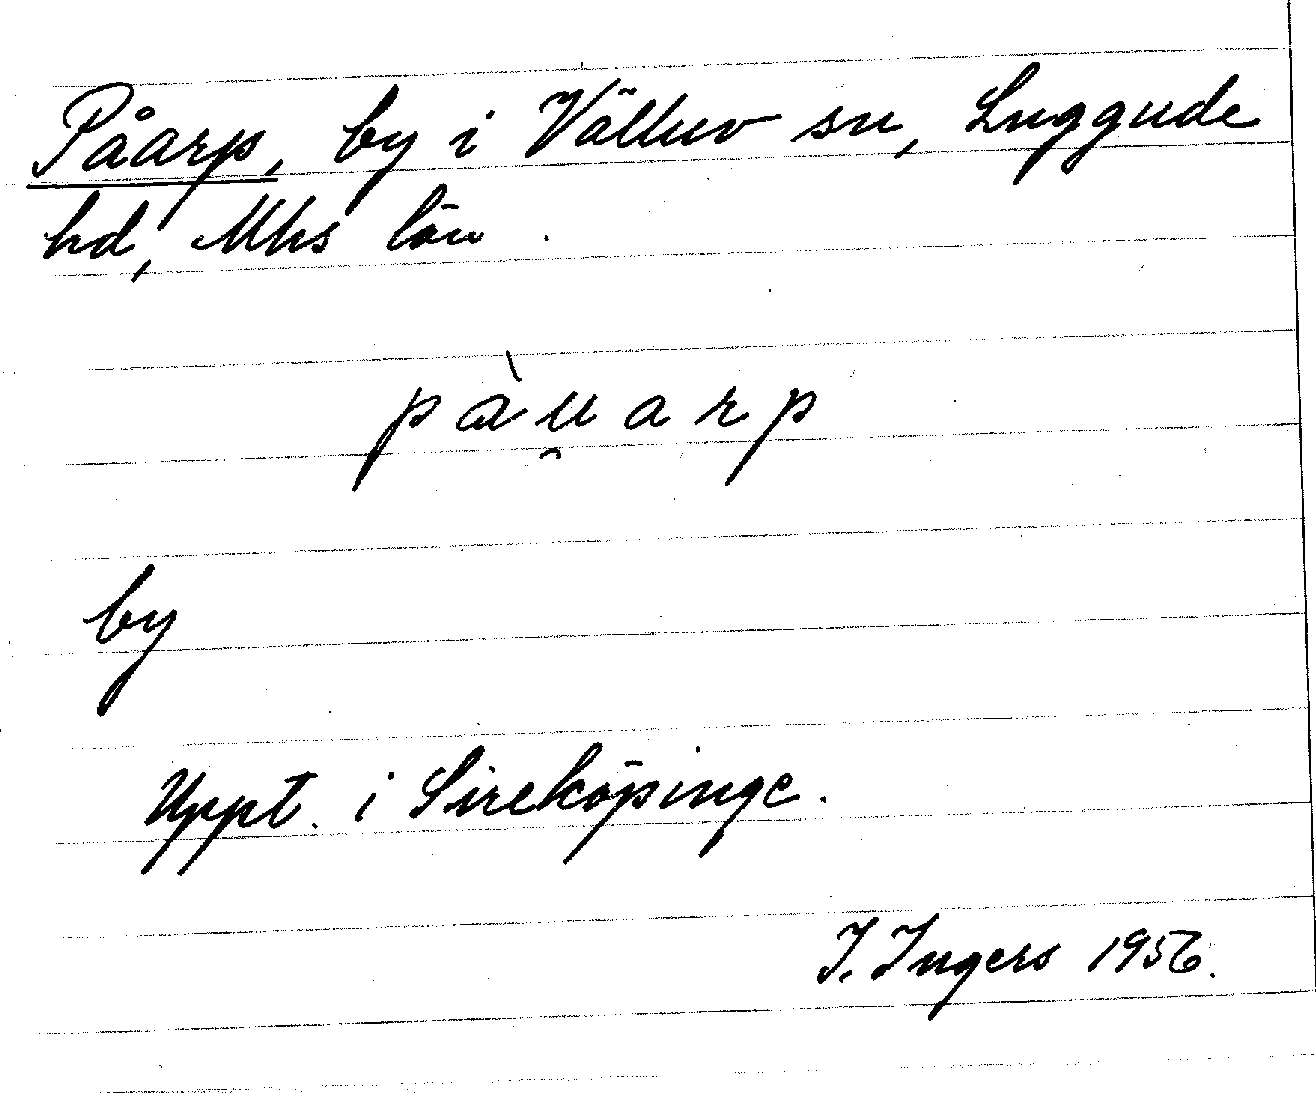 Påarp, by i Välluv sn, Luggude
hd, Mhs län.
pàu̯arp
by
Uppt. i Sireköpinge.
I. Ingers 1956.